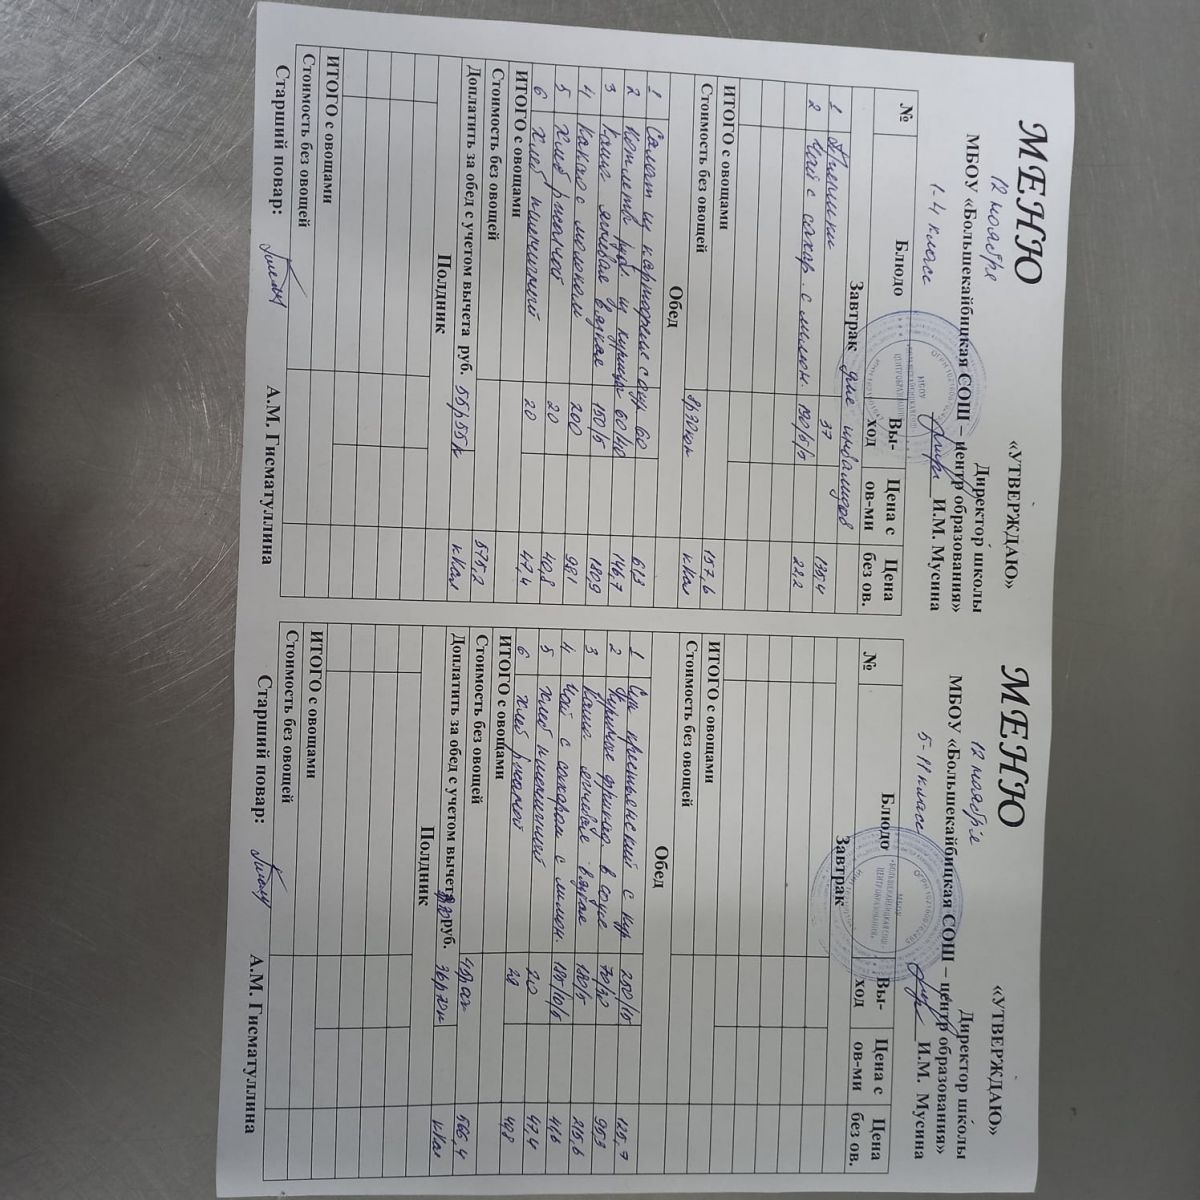 МЕНЮ
«УТВЕРЖДАЮ»
12 ноября
Директор школы
МБОУ «Большекайбицкая СОШ – центр образования»
1-4 класс
И.М. Мусина
№ Блюдо Вы-ход Цена с ов-ми Цена без ов.
Завтрак для инвалидов
1 37 135,4
2 Чай с сахар. с лимон. 190/5/5 22,2
ИТОГО с овощами 157,6
Стоимость без овощей 8р30к кКал
Обед
1 Салат из картофеля с огур 60 61,3
2 Котлета руб из курицы 60/40 146,7
3 Каша ячневая вязкая 150/5 180,9
4 Какао с молоком 200 98,1
5 Хлеб ржаной 20 40,8
6 Хлеб пшеничный 20 47,4
ИТОГО с овощами
Стоимость без овощей 575,2
Доплатить за обед с учетом вычета руб. 55р55к кКал
Полдник
ИТОГО с овощами
Стоимость без овощей
Старший повар: А.М. Гисматуллина
МЕНЮ
«УТВЕРЖДАЮ»
12 ноября
Директор школы
МБОУ «Большекайбицкая СОШ – центр образования»
5-11 класс
И.М. Мусина
№ Блюдо Вы-ход Цена с ов-ми Цена без ов.
Завтрак
ИТОГО с овощами
Стоимость без овощей
Обед
1 Суп крестьянский с кур 250/15 125,7
2 в соусе 70/30 95,3
3 Каша ячневая вязкая 180/5 215,6
4 Чай с сахаром с лимон. 185/10/5 41,6
5 Хлеб пшеничный 20 47,4
6 Хлеб ржаной 20 40,8
ИТОГО с овощами
Стоимость без овощей 566,4
Доплатить за обед с учетом вычета руб. 36р70к кКал
Полдник
ИТОГО с овощами
Стоимость без овощей
Старший повар: А.М. Гисматуллина